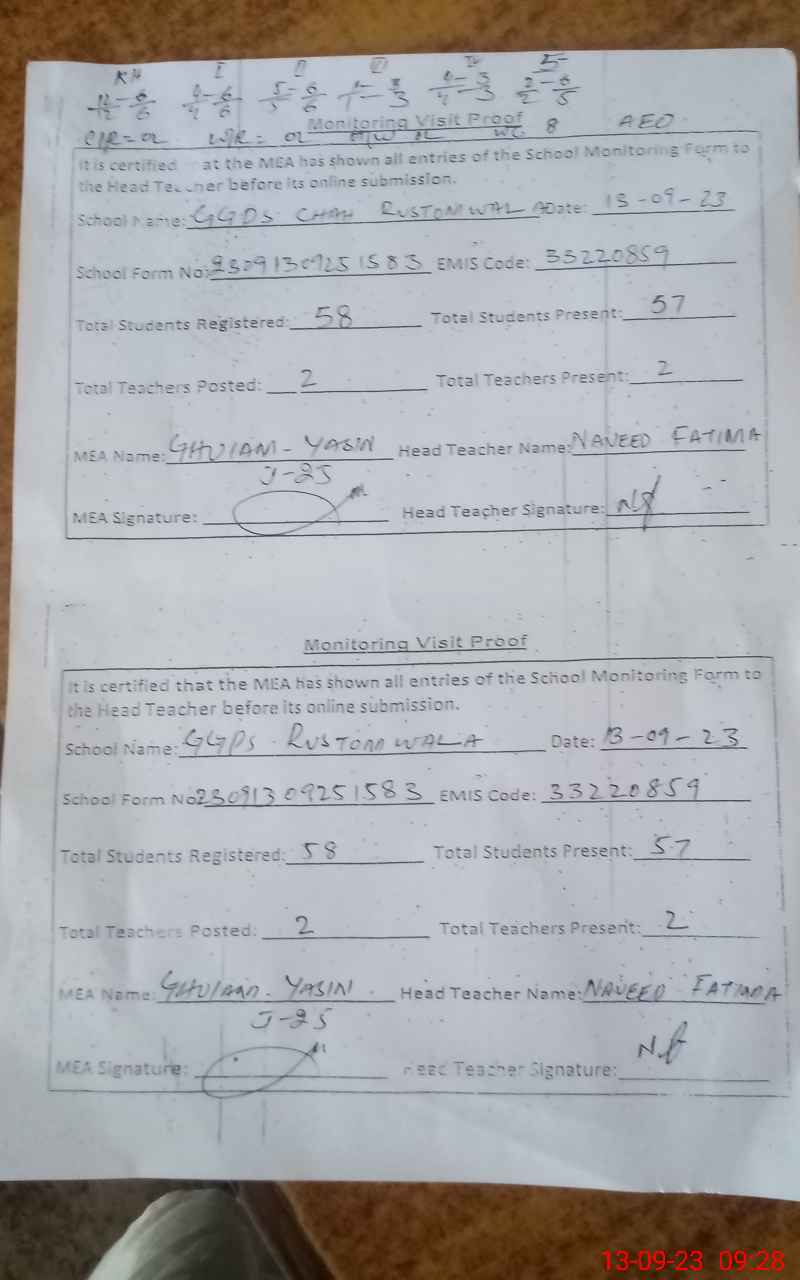 KH I II III IV 5
12/12 - 6/6 4/4 - 6/6 5/5 - 6/6 3/3 4/4 - 3/3 2/2
Monitoring Visit Proof
C/R = 02 W/R = 02 WC 8 AEO
It is certified at the MEA has shown all entries of the School Monitoring Form to
the Head Teacher before its online submission.
School Name: GGPS CHAH RUSTOM WALA Date: 13-09-23
School Form No: 23091309251583 EMIS Code: 33220859
Total Students Registered: 58 Total Students Present: 57
Total Teachers Posted: 2 Total Teachers Present: 2
MEA Name: GHULAM-YASIN Head Teacher Name: NAVEED FATIMA
J-25
MEA Signature: Head Teacher Signature: Nf
Monitoring Visit Proof
It is certified that the MEA has shown all entries of the School Monitoring Form to
the Head Teacher before its online submission.
School Name: GGPS RUSTOM WALA Date: 13-09-23
School Form No: 23091309251583 EMIS Code: 33220859
Total Students Registered: 58 Total Students Present: 57
Total Teachers Posted: 2 Total Teachers Present: 2
MEA Name: GHULAM-YASIN Head Teacher Name: NAVEED FATIMA
J-25
MEA Signature: Head Teacher Signature: Nf
13-09-23 09:28